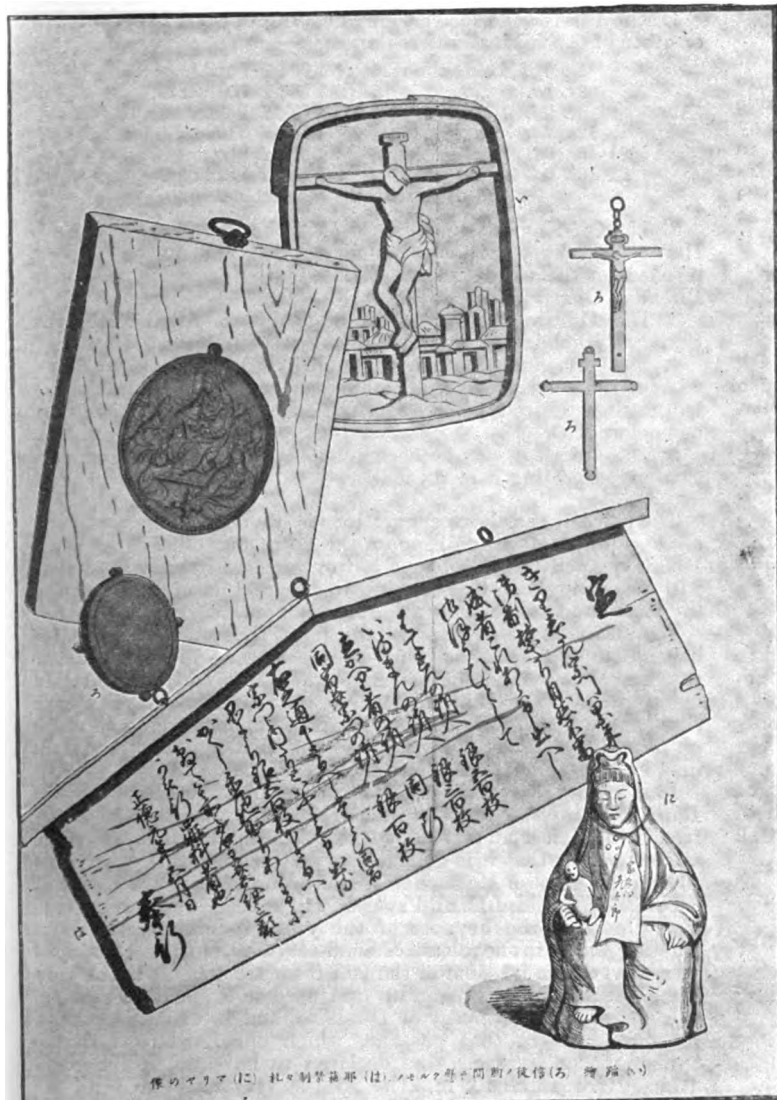 い
い
ろ
ろ
ろ
は
に
定
きりしたん宗門ハ累年
御制禁たり自然不審
成者これあらは申出へし
御ほうひとして
はてれんの訴人 銀五百枚
いるまんの訴人 銀三百枚
立かへり者の訴人 同断
同宿并宗門の訴人 銀百枚
右之通下さるへしたとひ同宿
宗門之内たりといふとも申出る
品により銀五百枚下さるへし
かくし置他所よりあらはるゝに
おゐてハ其所之名主并五人組
可被行罪科者也
正徳元年五月日
奉行
(い)踏繪 (ろ)信徒ノ胸間ニ懸クルモノ (は)耶蘇禁制々札 (に)マリヤの像